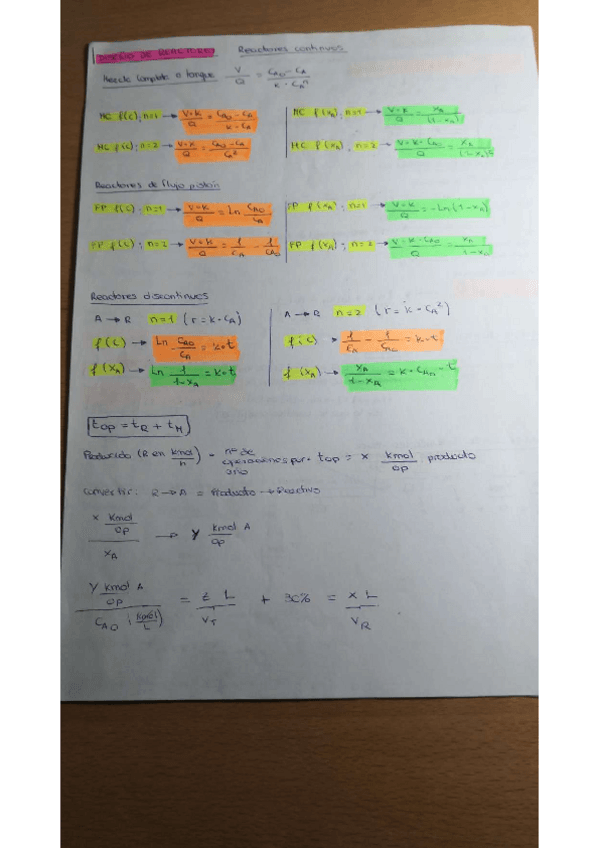 DISEÑO DE REACTORES Reactores continuos
Mezcla completa o tanque V/Q = (C_A0 - C_A)/(k · C_A^n)
MC f(C); n=1 → V·k/Q = (C_A0 - C_A)/C_A
MC f(X_A); n=1 → V·k/Q = X_A/(1-X_A)
MC f(C); n=2 → V·k/Q = (C_A0 - C_A)/C_A²
MC f(X_A); n=2 → V·k·C_A0/Q = X_A/(1-X_A)²
Reactores de flujo pistón
FP f(C); n=1 → V·k/Q = Ln C_A0/C_A
FP f(X_A); n=1 → V·k/Q = -Ln(1-X_A)
FP f(C); n=2 → V·k/Q = 1/C_A - 1/C_A0
FP f(X_A); n=2 → V·k·C_A0/Q = X_A/(1-X_A)
Reactores discontinuos
A → R n=1 (r = k·C_A)
A → R n=2 (r = k·C_A²)
f(C) → Ln C_A0/C_A = k·t
f(C) → 1/C_A - 1/C_A0 = k·t
f(X_A) → Ln 1/(1-X_A) = k·t
f(X_A) → X_A/(1-X_A) = k·C_A0·t
t_op = t_R + t_M
Producido (R en kmol/h) = nº de operaciones por · t op = x kmol/op producto
Convertir: R → A = Producto → Reactivo
x kmol/op / X_A → y kmol A/op
y kmol A/op / C_A0 (kmol/L) = z L / V_T + 30% = x L / V_R